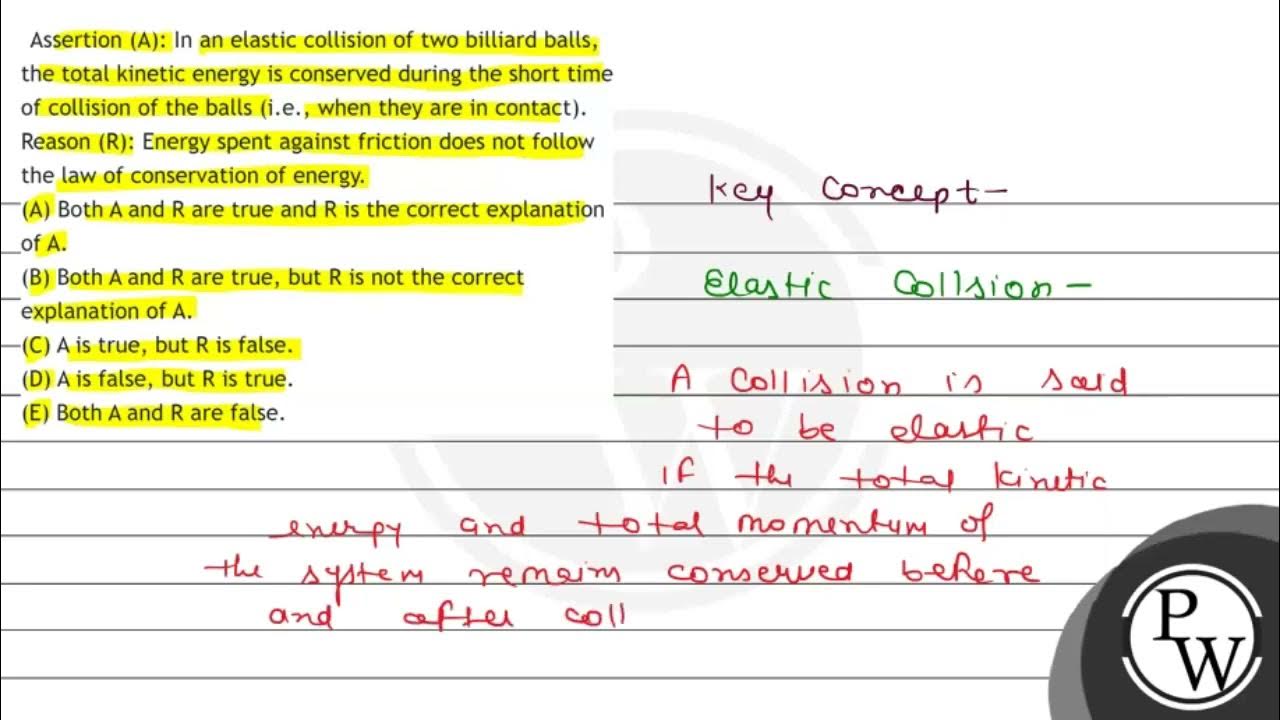 Assertion (A): In an elastic collision of two billiard balls,
the total kinetic energy is conserved during the short time
of collision of the balls (i.e., when they are in contact).
Reason (R): Energy spent against friction does not follow
the law of conservation of energy.
(A) Both A and R are true and R is the correct explanation
of A.
(B) Both A and R are true, but R is not the correct
explanation of A.
(C) A is true, but R is false.
(D) A is false, but R is true.
(E) Both A and R are false.
Key Concept-
Elastic Collsion-
A Collision is said
to be elastic
if the total kinetic
energy and total momentum of
the system remain conserved before
and after coll
P
W